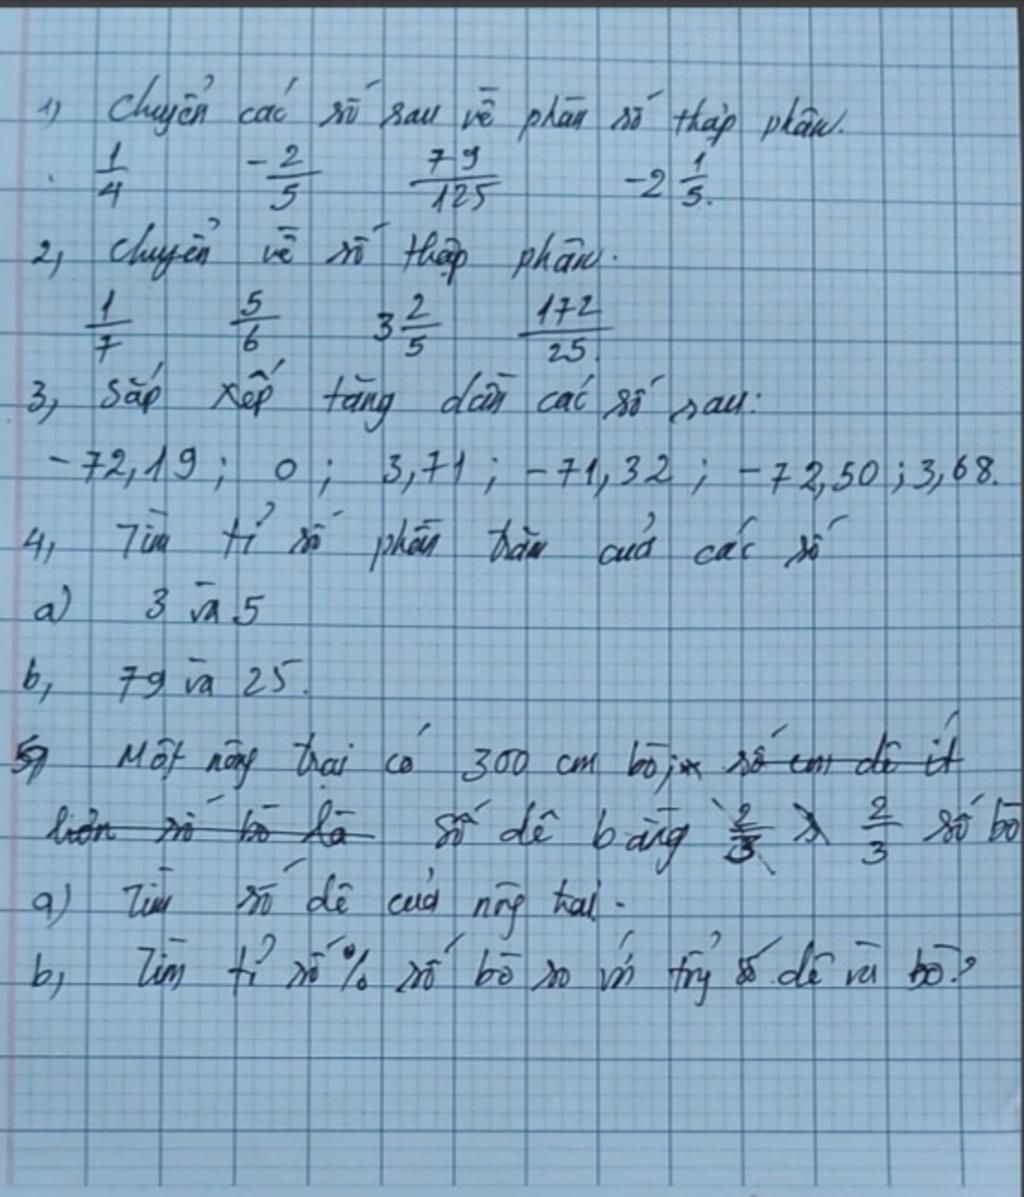 1) Chuyển các số sau về phân số thập phân.
1/4 -2/5 79/125 -2 1/5.
2, Chuyển về số thập phân.
1/7 5/6 3 2/5 172/25.
3, Sắp xếp tăng dần các số sau:
-72,19 ; 0 ; 3,71 ; -71,32 ; -72,50 ; 3,68.
4, Tìm tỉ số phần trăm của các số
a) 3 và 5
b, 79 và 25.
5, Một nông trại có 300 con bò, số con dê ít
hơn số bò là số dê bằng 2/3 2/3 số bò
a) Tìm số dê của nông trại.
b, Tìm tỉ số % số bò so với tổng số dê và bò?